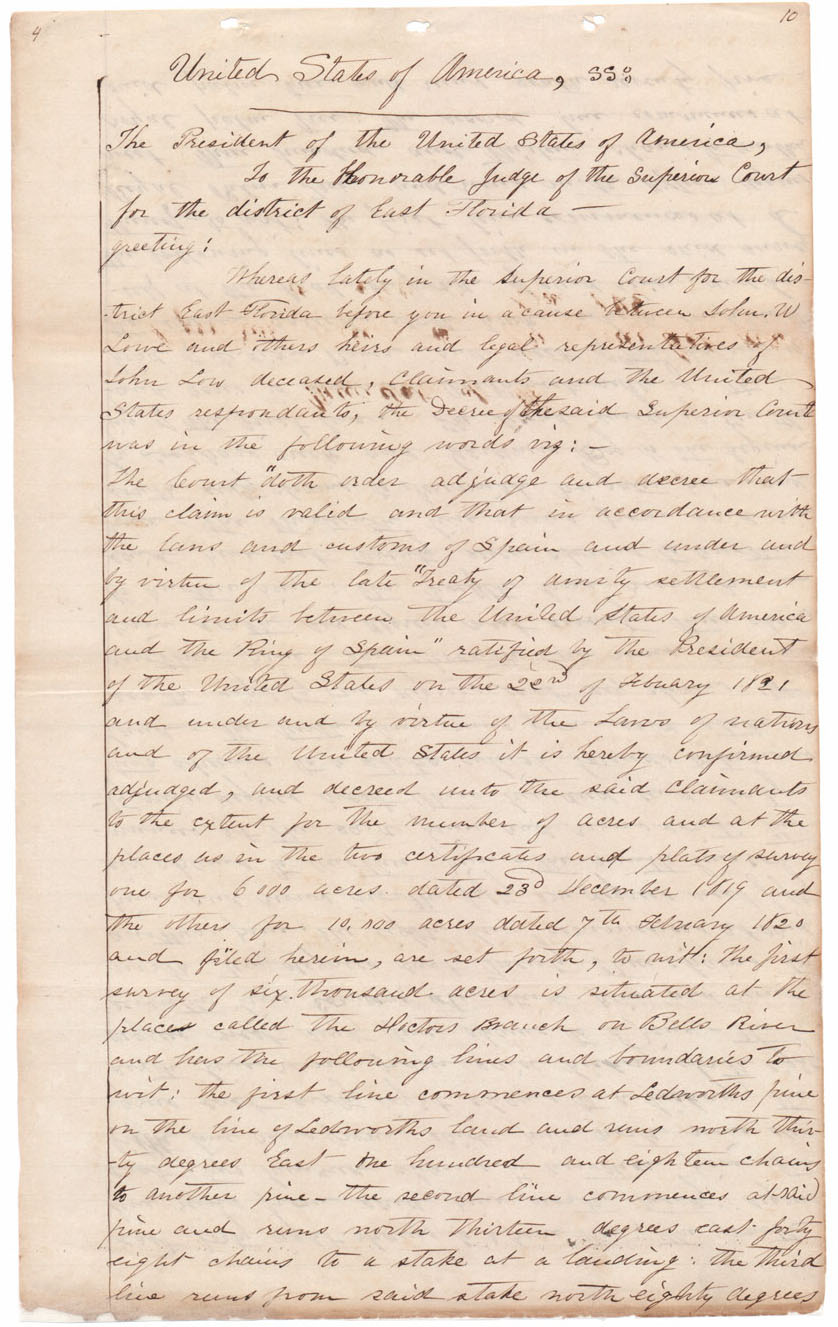 4
10
United States of America, ss:
The President of the United States of America,
To the Honorable Judge of the Superior Court
for the district of East Florida —
greeting:
Whereas lately in the Superior Court for the dis-
-trict East Florida before you in a cause between John. W
Lowe and others heirs and legal representatives of
John Low deceased, Claimants and the United
States respondants, the Decree of the said Superior Court
was in the following words viz: —
The Court "doth order adjudge and decree that
this claim is valid and that in accordance with
the laws and customs of Spain and under and
by virtue of the late "Treaty of amity settlement
and limits between the United States of America
and the King of Spain" ratified by the President
of the United States on the 22nd of Febuary 1821
and under and by virtue of the Laws of nations
and of the United States it is hereby confirmed
adjudged, and decreed unto the said Claimants
to the extent for the number of acres and at the
places as in the two certificates and plats of survey
one for 6000 acres dated 23d December 1819 and
the others for 10,000 acres dated 7th Febuary 1820
and filed herein, are set forth, to wit: the first
survey of six thousand acres is situated at the
places called the Doctors Branch on Bells River
and has the following lines and boundaries to
wit: the first line commences at Ledworths pine
on the line of Ledworths land and runs north thir-
-ty degrees East One hundred and eighteen chains
to another pine – the second line commences at said
pine and runs north thirteen degrees east forty
eight chains to a stake at a landing: the third
line runs from said stake north eighty degrees